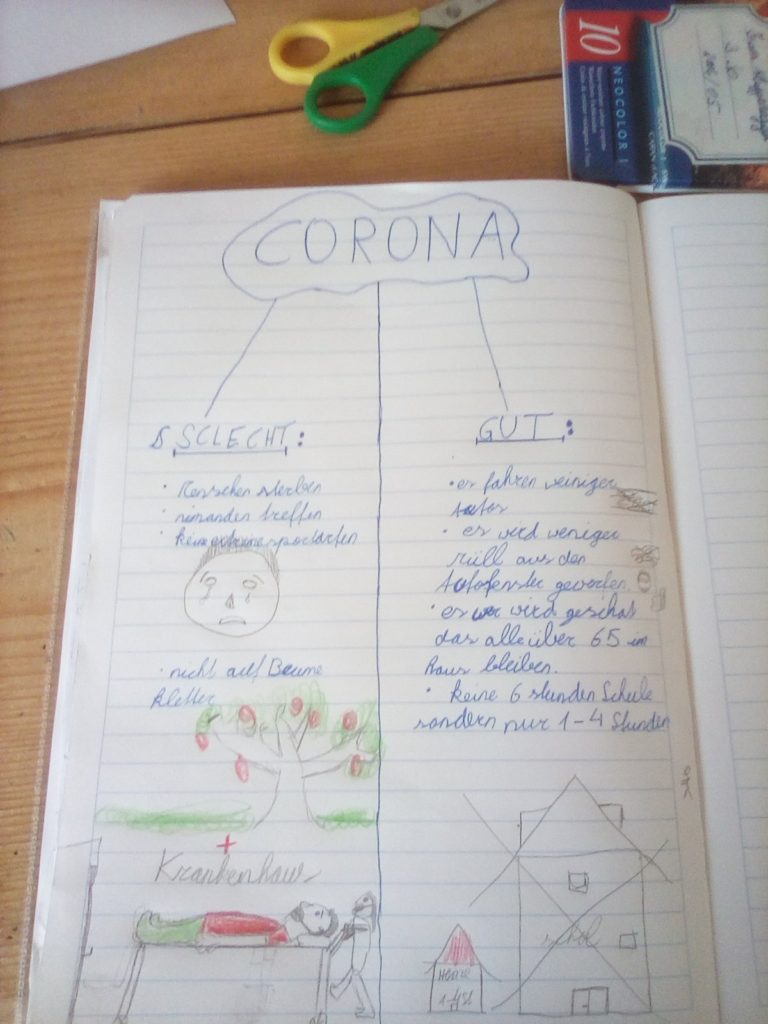 10
NEOCOLOR I
CORONA
S SCLECHT:
· Menschen sterben
· nimanden treffen
· keine extreme sportarten
· nicht auf Beume
kletter
GUT:
· es fahren weiniger
Autos
· es wird weniger
müll aus den
Autofenster geworfen.
· es wer wird geschat
das alle über 65 im
haus bleiben.
· keine 6 stunden Schule
sondern nur 1-4 Stunden
Krankenhaus
1-4St